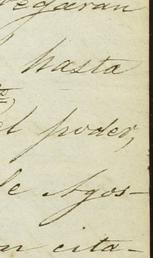 egaran
hasta
el poder,
de Agos-
on cita-